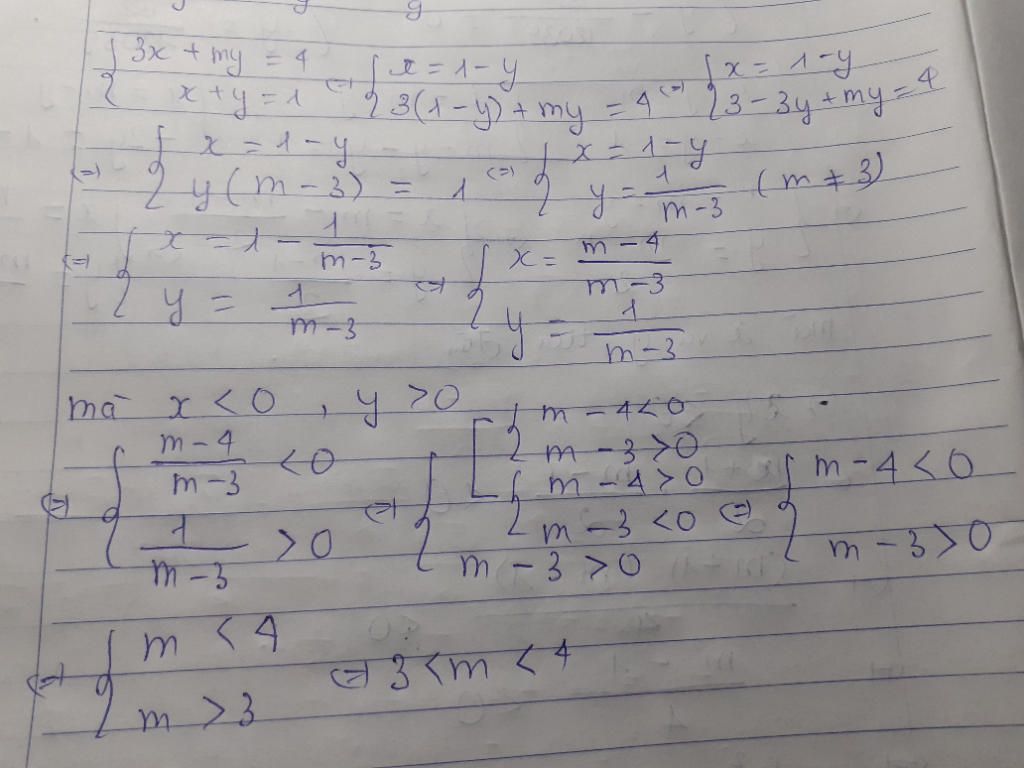 { 3x + my = 4
x + y = 1 ⇔ { x = 1 - y
3(1 - y) + my = 4 ⇔ { x = 1 - y
3 - 3y + my = 4
⇔ { x = 1 - y
y(m - 3) = 1 ⇔ { x = 1 - y
y = 1/(m-3) (m ≠ 3)
⇔ { x = 1 - 1/(m-3)
y = 1/(m-3) ⇔ { x = (m-4)/(m-3)
y = 1/(m-3)
mà x < 0 , y > 0
⇔ { (m-4)/(m-3) < 0
1/(m-3) > 0 ⇔ { [ { m - 4 < 0
m - 3 > 0
{ m - 4 > 0
m - 3 < 0
m - 3 > 0 ⇔ { m - 4 < 0
m - 3 > 0
⇔ { m < 4
m > 3 ⇔ 3 < m < 4